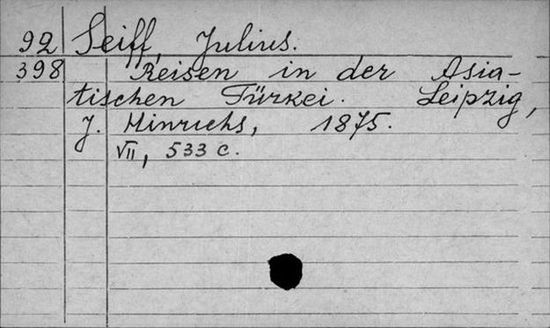 92 Seiff, Julius.
398 Reisen in der Asia-
tischen Türkei. Leipzig,
J. Hinrichs, 1875.
VII, 533 c.